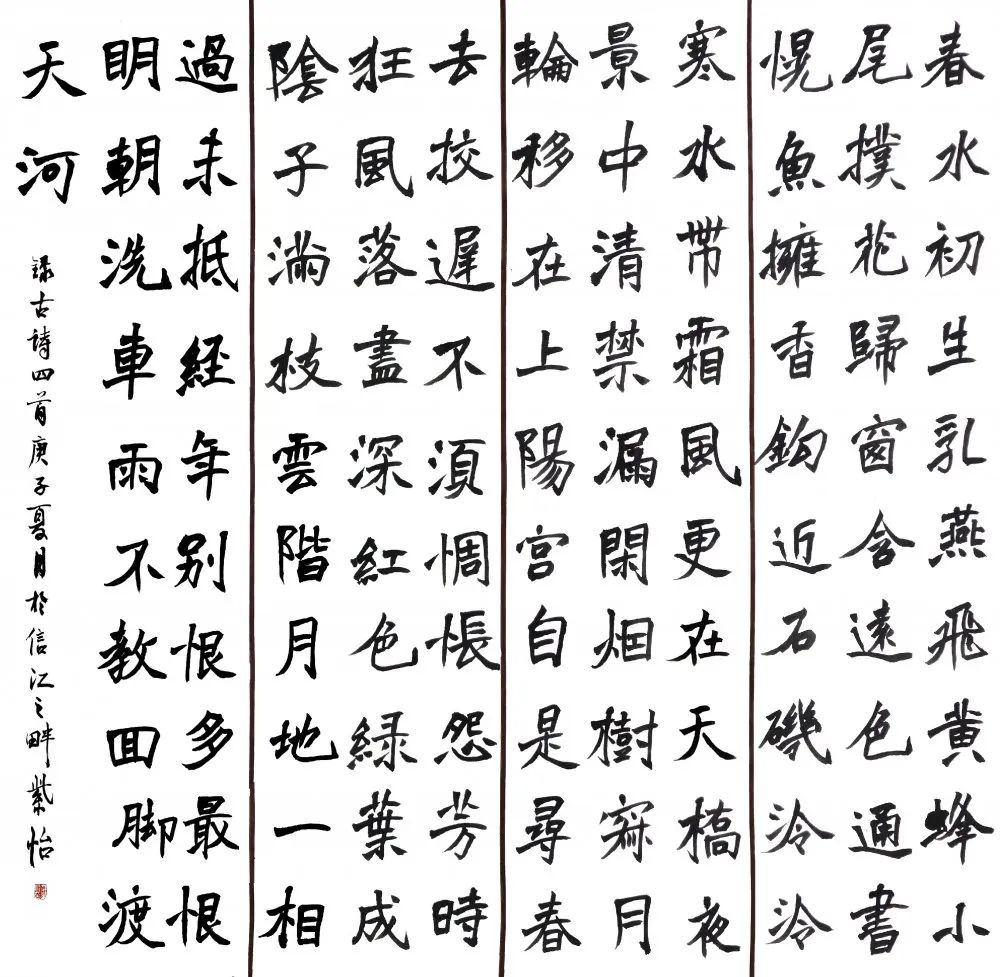 春水初生乳燕飛黄蜂小
尾撲花歸窗含遠色通書
幌魚擁香鈎近石磯泠泠
寒水帶霜風更在天橋夜
景中清禁漏閑烟樹寂月
輪移在上陽宮自是尋春
去挍遲不須惆悵怨芳時
狂風落盡深紅色緑葉成
陰子滿枝雲階月地一相
過未抵經年别恨多最恨
明朝洗車雨不教回脚渡
天河
録古詩四首庚子夏月於信江之畔紫怡